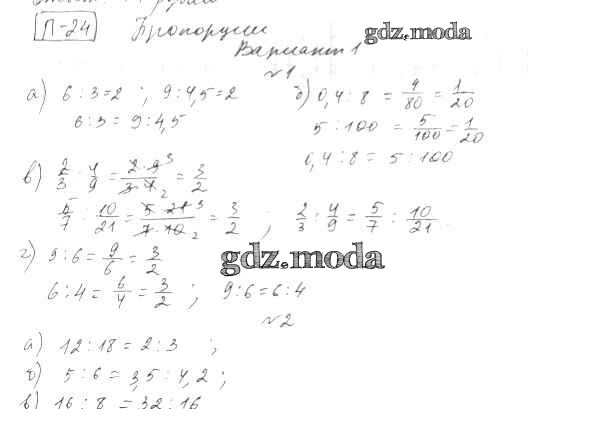 П-24 Пропорции gdz.moda
Вариант 1
№1
а) 6 : 3 = 2 ; 9 : 4,5 = 2 б) 0,4 : 8 = 4/80 = 1/20
6 : 3 = 9 : 4,5 5 : 100 = 5/100 = 1/20
0,4 : 8 = 5 : 100
в) 2/3 : 4/9 = 2·9 3/3·4 2 = 3/2
5/7 : 10/21 = 5·21 3/7·10 2 = 3/2 ; 2/3 : 4/9 = 5/7 : 10/21
г) 9 : 6 = 9/6 = 3/2 gdz.moda
6 : 4 = 6/4 = 3/2 ; 9 : 6 = 6 : 4
№2
а) 12 : 18 = 2 : 3 ;
б) 5 : 6 = 3,5 : 4,2 ;
в) 16 : 8 = 32 : 16